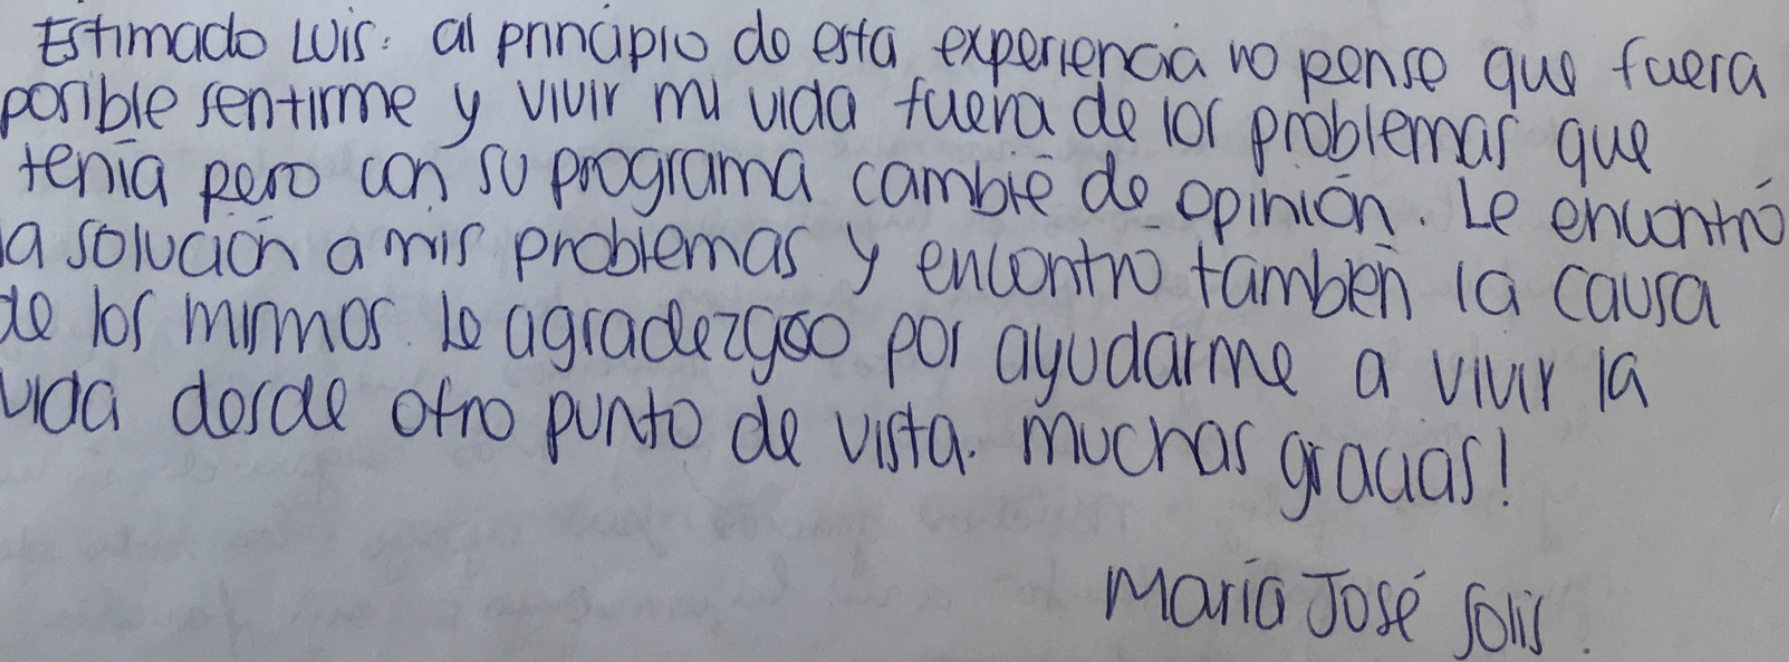 Estimado Luis: al principio de esta experiencia no pense que fuera
posible sentirme y vivir mi vida fuera de los problemas que
tenía pero con su programa cambié de opinión. Le encontró
la solución a mis problemas y encontró también la causa
de los mismos. Le agradezgoo por ayudarme a vivir la
vida desde otro punto de vista. Muchas gracias!
María José Solis.